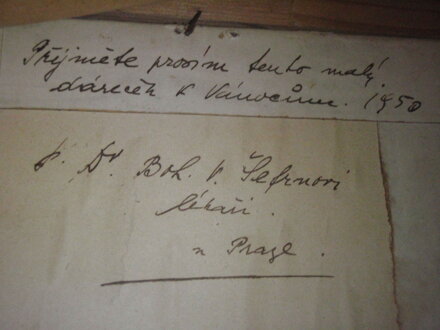 Přijměte prosím tento malý
dáreček k Vánocům. 1950
p. Dr. Boh. V. Šefrnovi
lékaři.
v Praze.